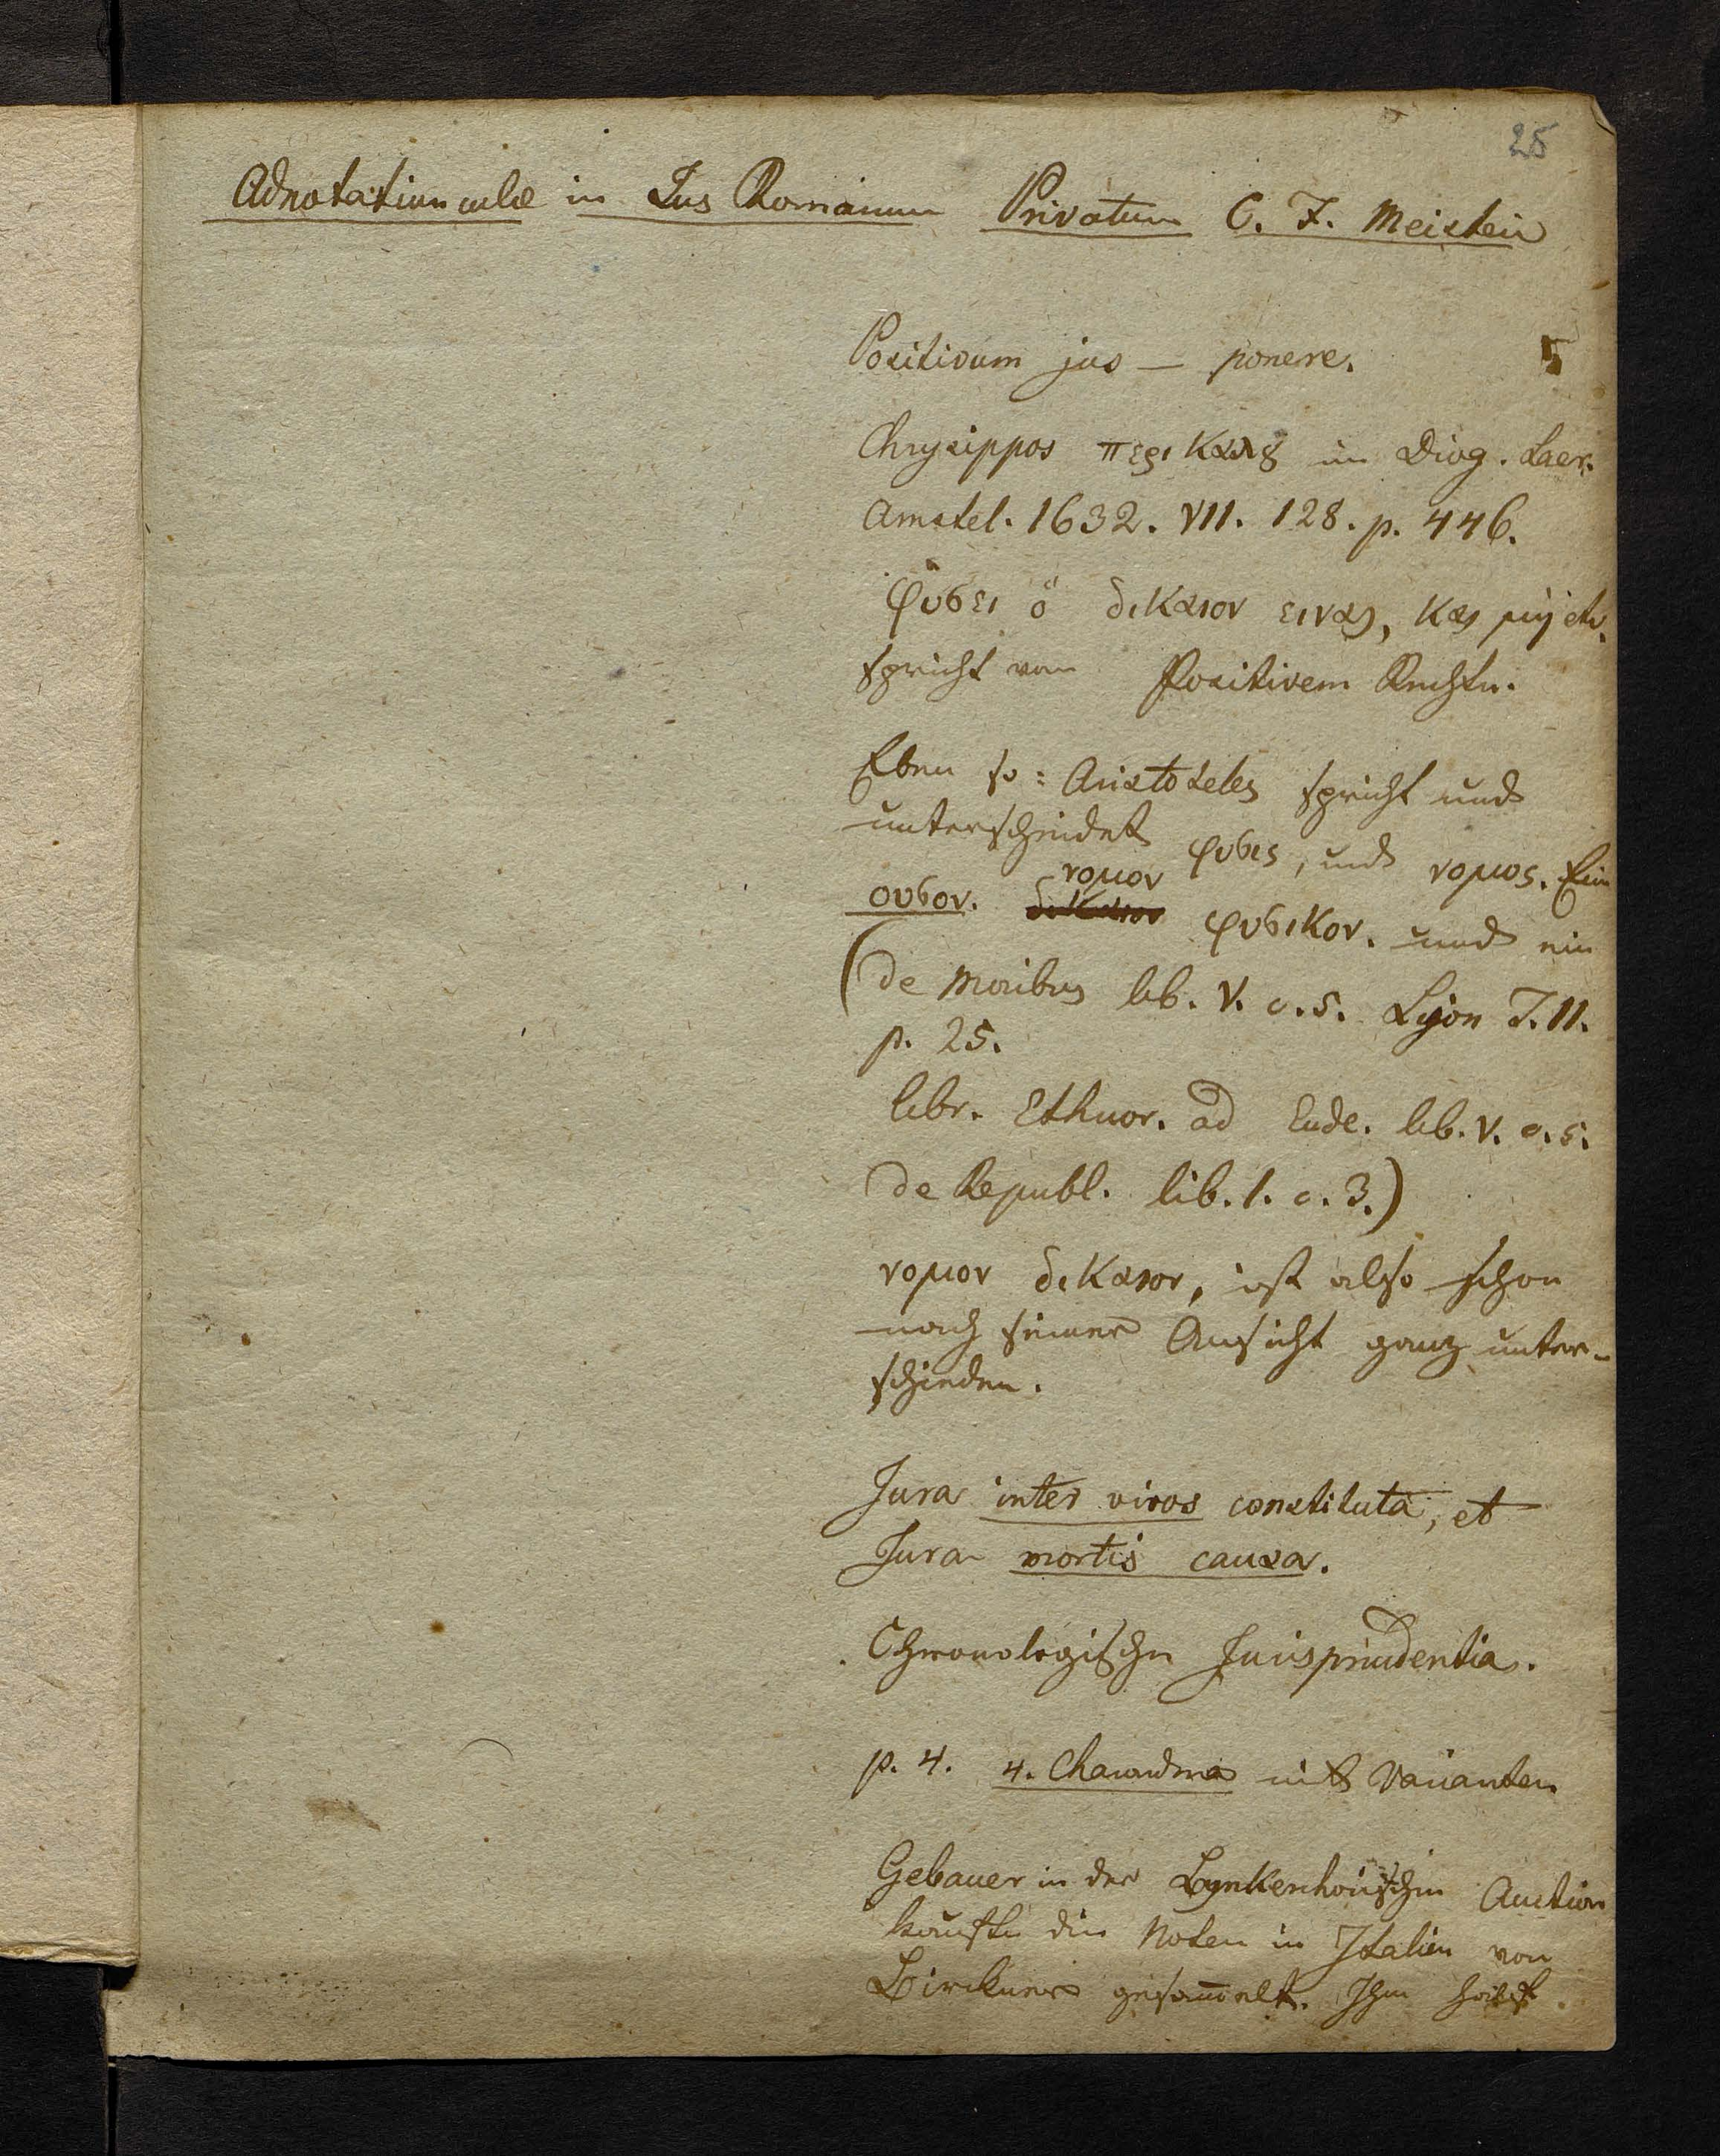 25
Adnotatiunculæ in Jus Romanum Privatum C. F. Meisteri
Positivum jus — ponere.
Chrysippos περι καλȣ in Diog. Laer.
Amstel. 1632. VII. 128. p. 446.
φυσει ὁ δικαιον ειναι, και μὴ etc.
spricht von Positivem Rechte.
Eben so: Aristoteles spricht und
unterscheidet φυσις, und νομος. Ein
ουσον. νομον φυσικον. und ein
(de Moribus lib. V. c. 5. Lyon T. II.
p. 25.
libr. Ethicor. ad Eude. lib. V. c. 5.
de Republ. lib. 1. c. 3.)
νομον δικαιον, ist also schon
nach seiner Ansicht ganz unter-
schieden.
Jura inter vivos constituta, et
Jura mortis causa.
Chronologische Jurisprudentia.
p. 4. 4. mit Varianten
Gebauer in der Bynkenhoeischen Auction
kaufte die Noten in Italien von
Birckner gesam̅elt. Ihm